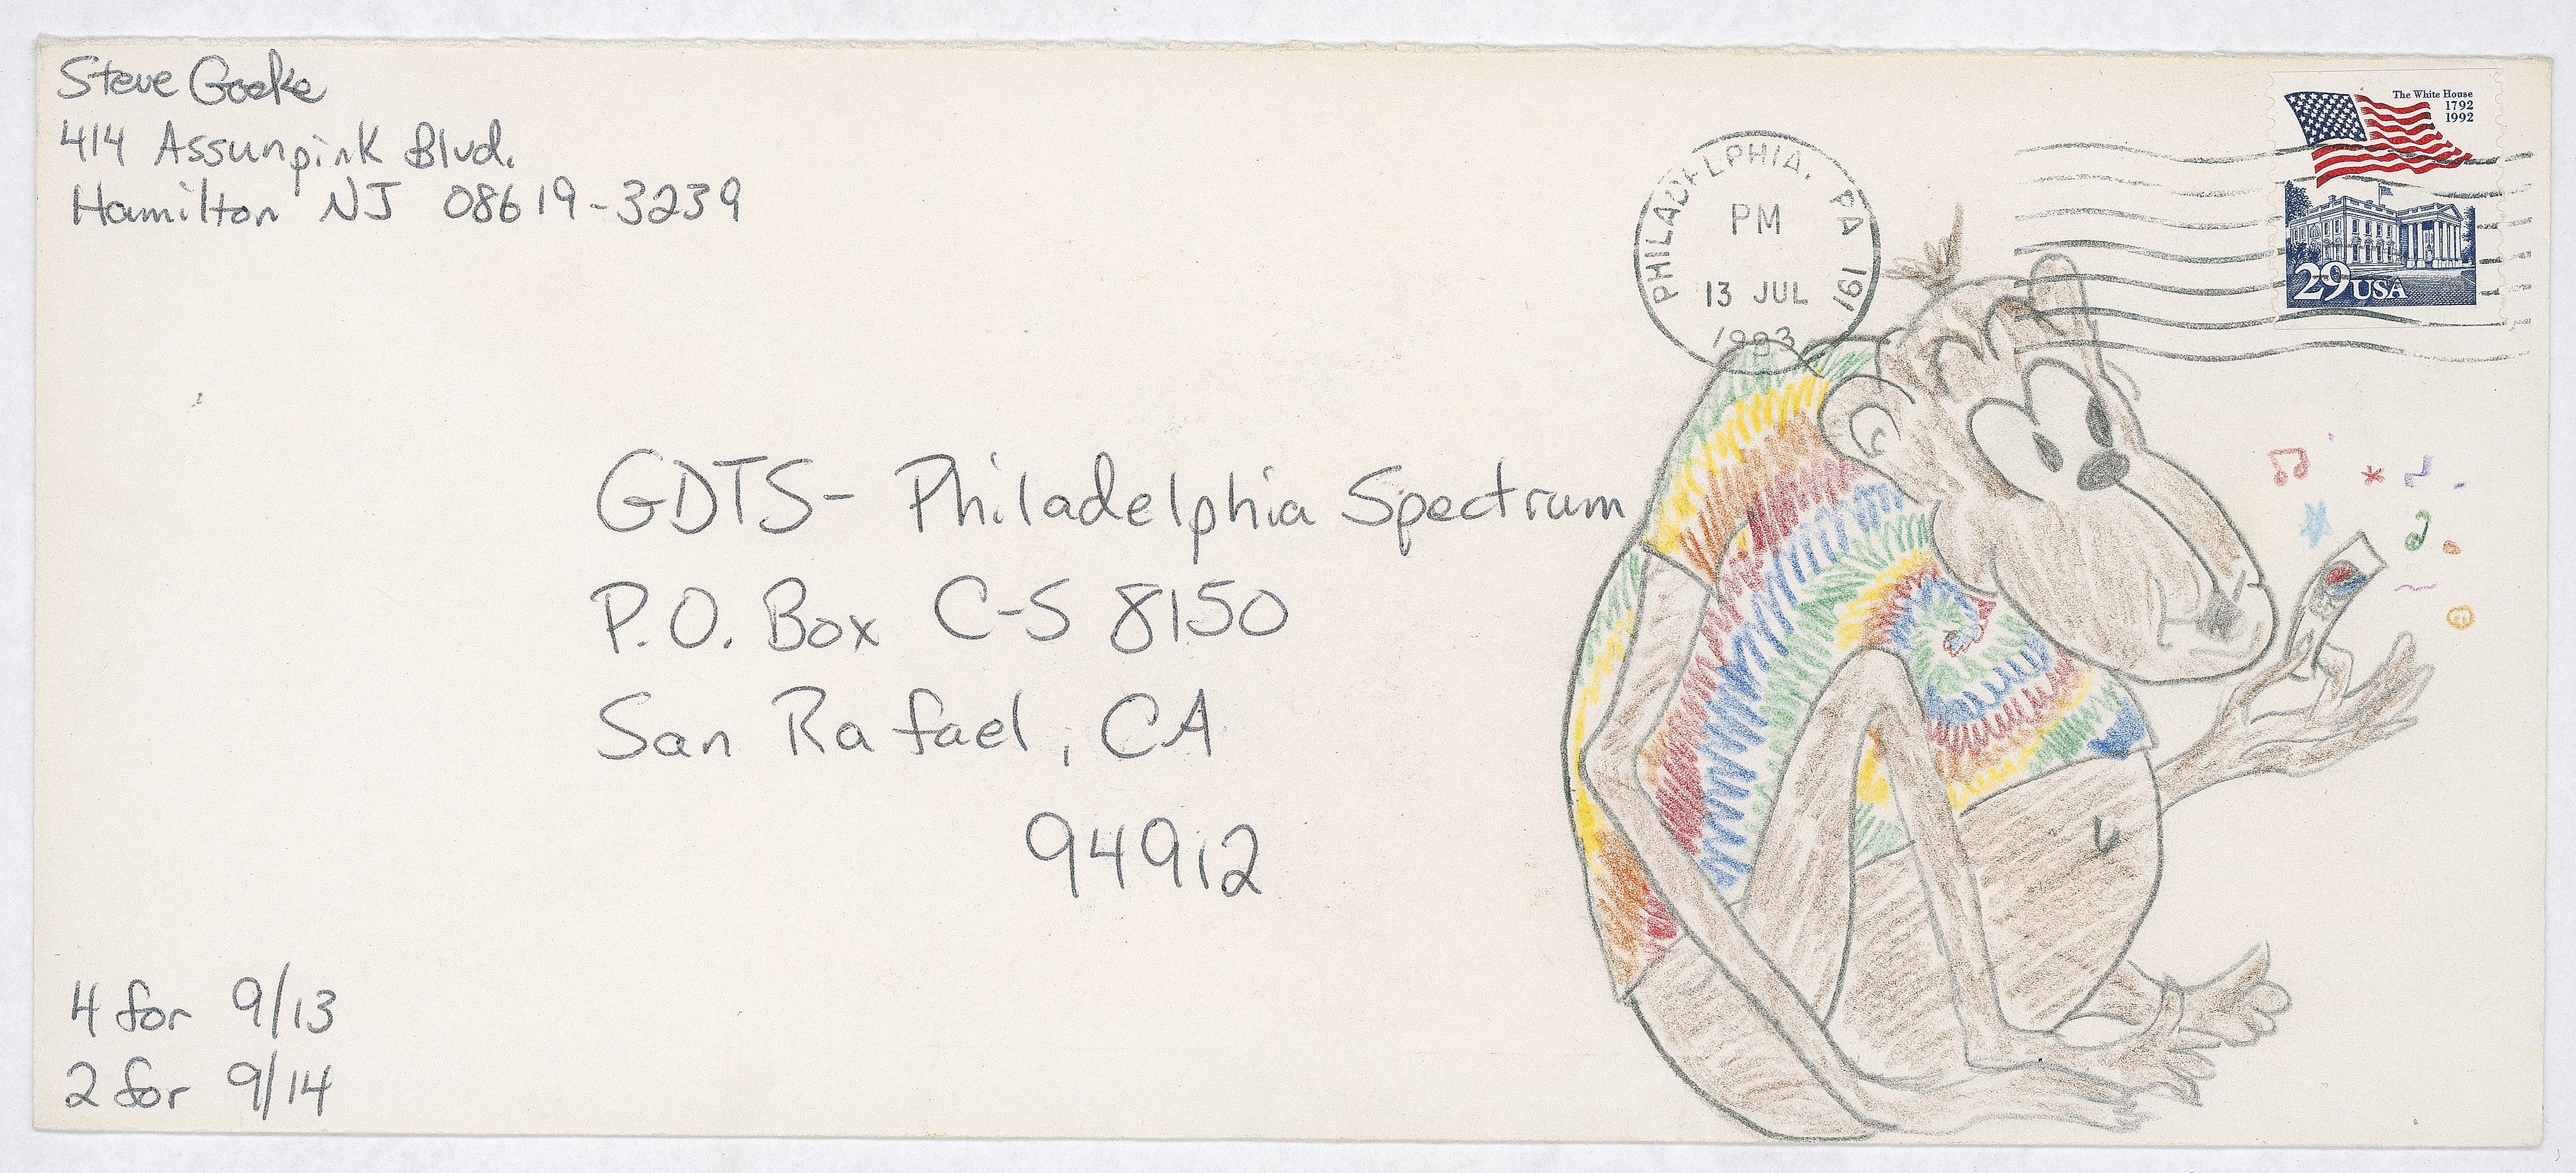 Steve Goeke
414 Assunpink Blvd.
Hamilton NJ 08619-3239
The White House
1792
1992
29 USA
PHILADELPHIA, PA 191
PM
13 JUL
1993
GDTS- Philadelphia Spectrum
P.O. Box C-S 8150
San Rafael, CA
94912
4 for 9/13
2 for 9/14